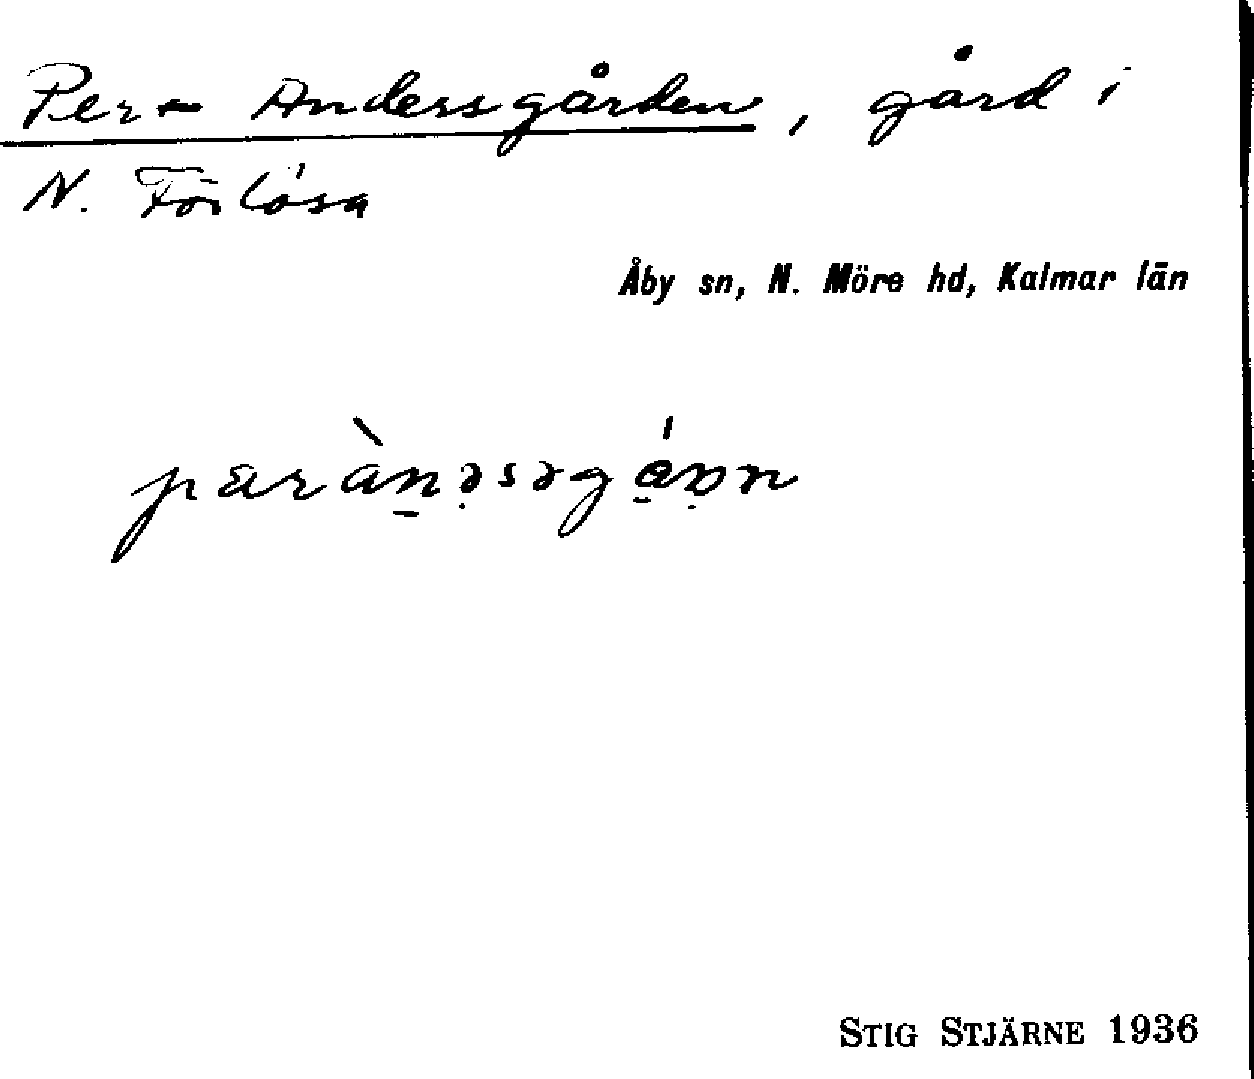 Per-Andersgården, gård i
N. Förlösa
Åby sn, N. Möre hd, Kalmar län
STIG STJÄRNE 1936